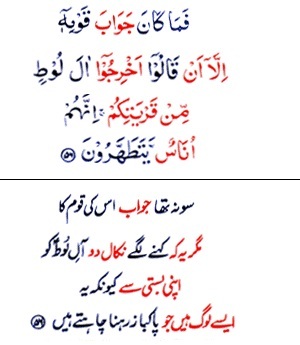 فَمَا كَانَ جَوَابَ قَوْمِهٖۤ
اِلَّاۤ اَنْ قَالُوْۤا اَخْرِجُوْۤا اٰلَ لُوْطٍ
مِّنْ قَرْيَتِكُمْ ۚ اِنَّهُمْ
اُنَاسٌ يَّتَطَهَّرُوْنَ ﴿۵۶﴾
سو نہ تھا جواب اس کی قوم کا
مگر یہ کہ کہنے لگے نکال دو آلِ لُوطؑ کو
اپنی بستی سے کیونکہ یہ
ایسے لوگ ہیں جو پاکباز رہنا چاہتے ہیں ﴿۵۶﴾